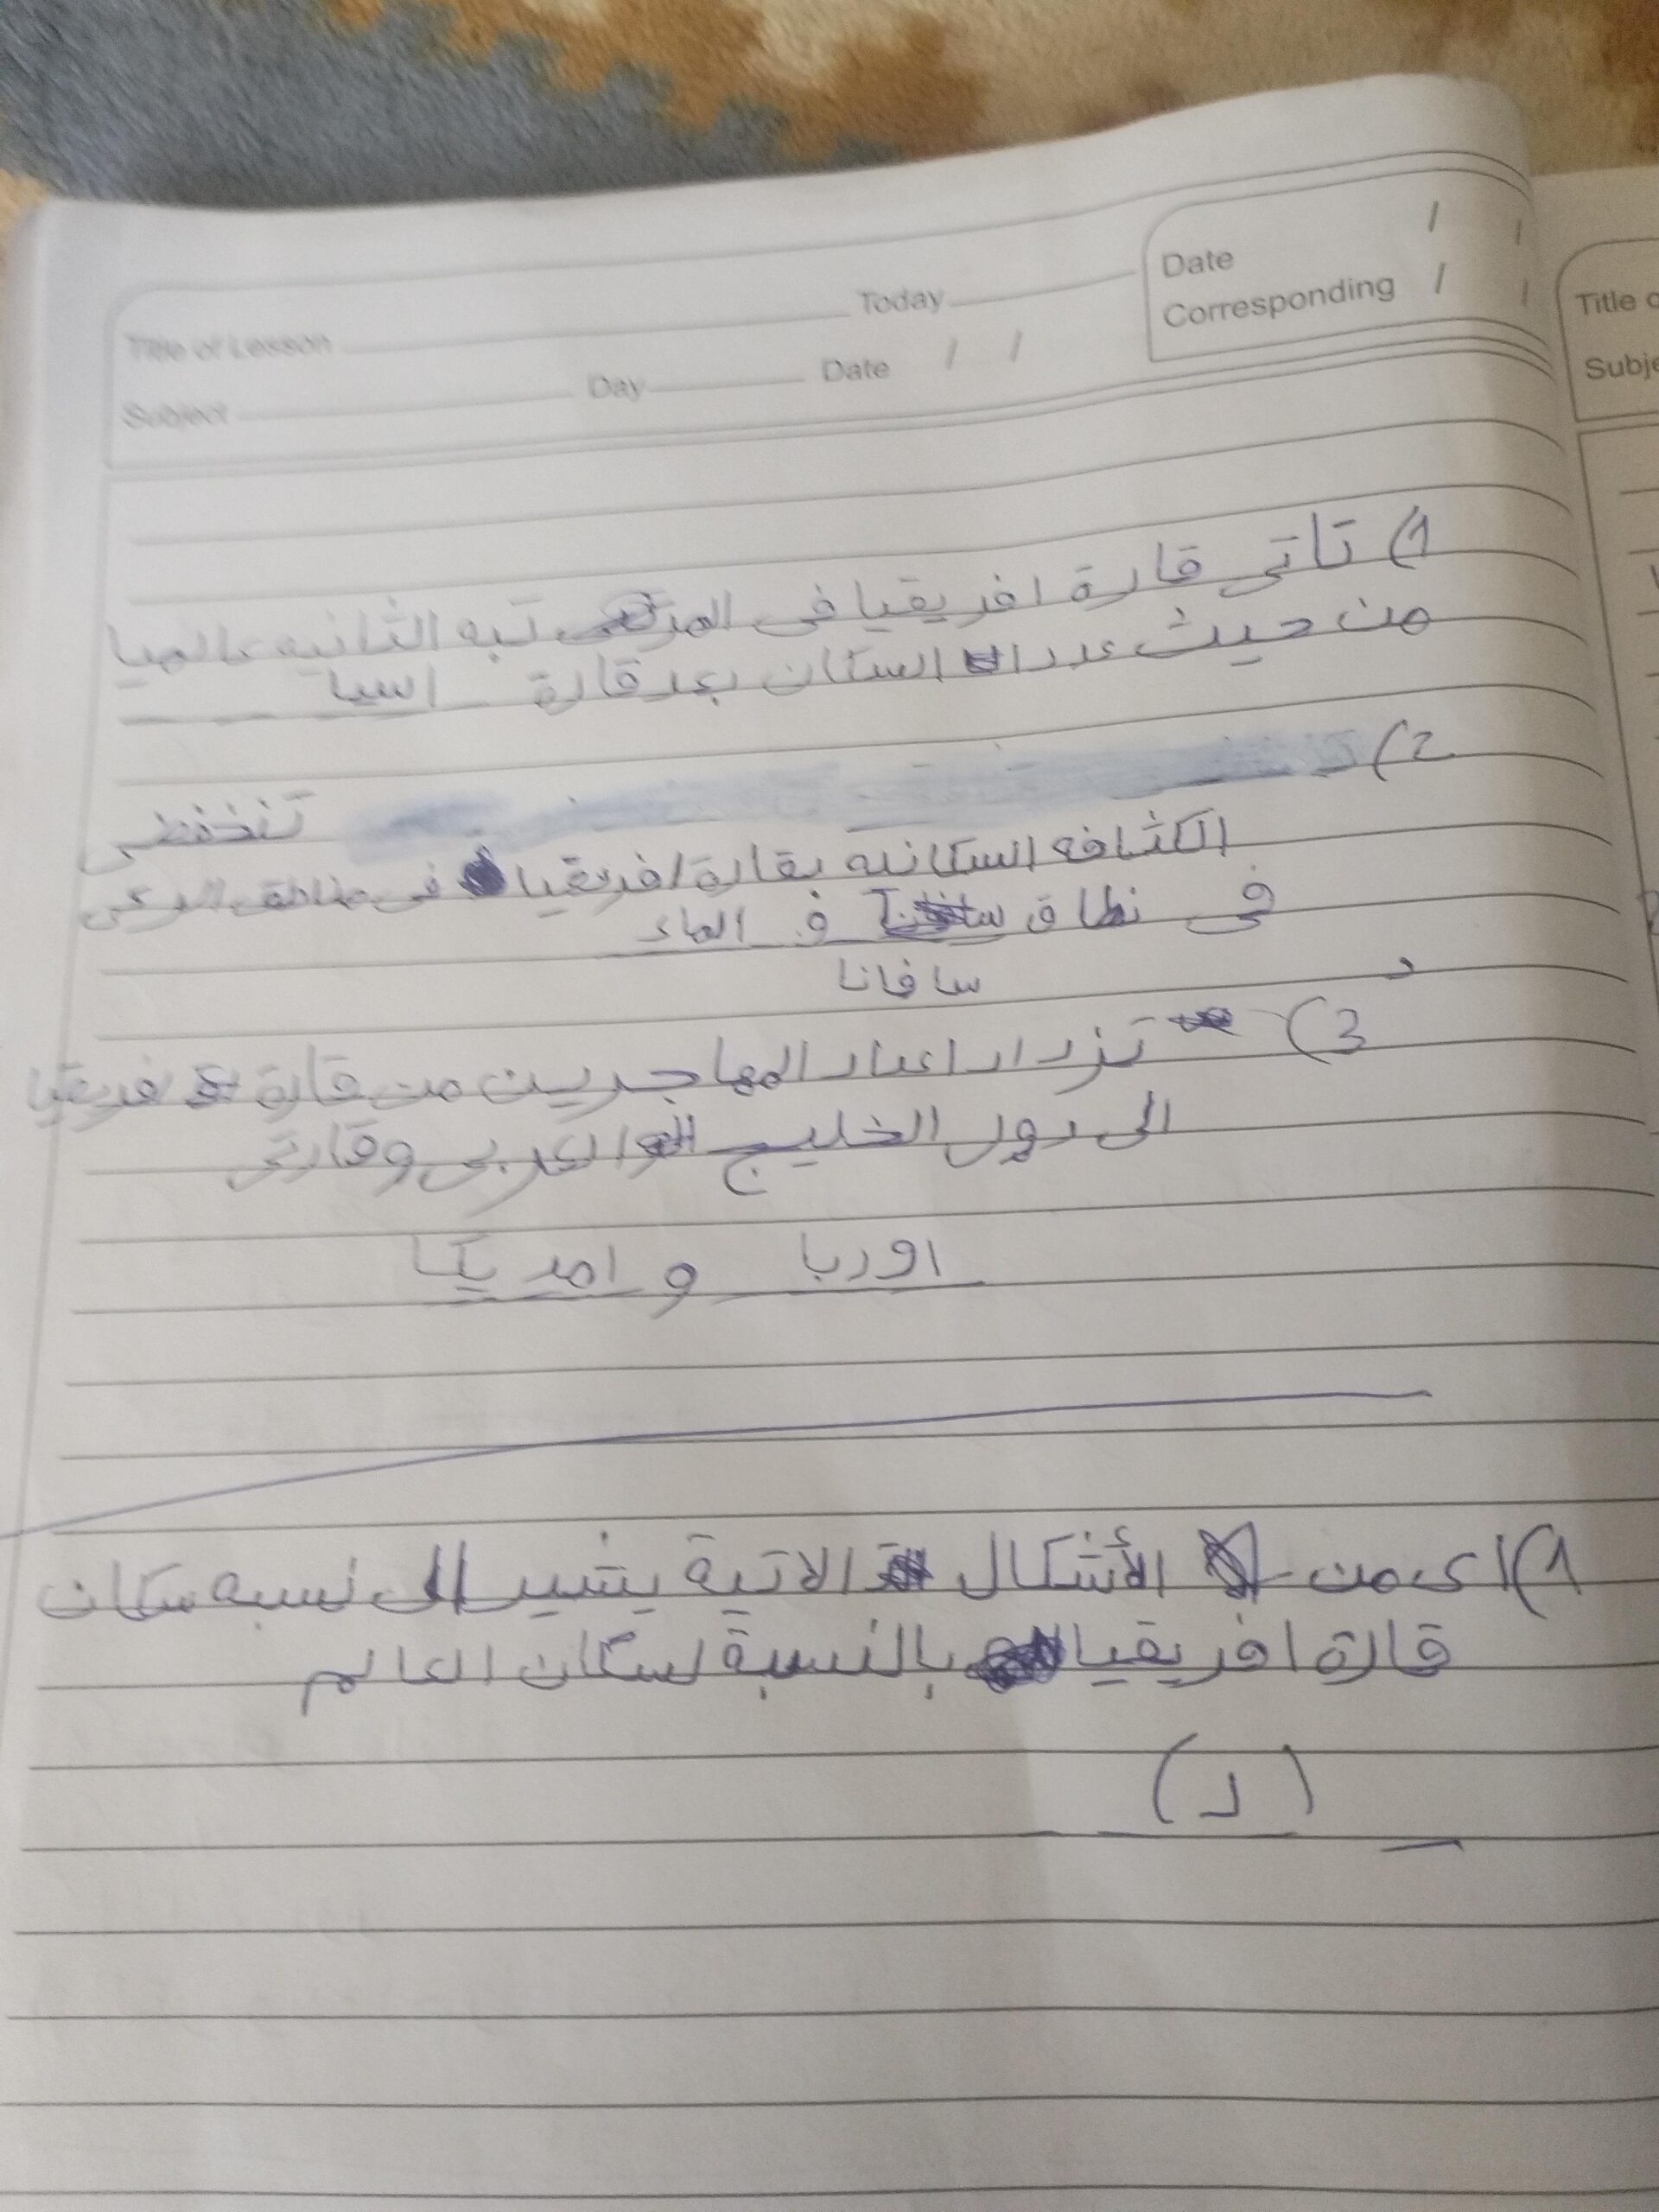 Title of Lesson Today
Date / /
Corresponding / /
Subject Day Date / /
Title o
Subje
1) تاتى قارة افريقيا فى المر تبه الثانيه عالميا
من حيث عدد السكان بعد قارة اسيا
2)
تنخفض
الكثافه السكانيه بقارة افريقيا فى مناطق الرعى
فى نطاق و الماء
سافانا
3) تزداد اعداد المهاجريين من قارة افريقيا
الى دول الخليج العربى وقارتى
اوربا و امريكا
1) اى من الأشكال الاتية يشير الى نسبه سكان
قارة افريقيا بالنسبة لسكان العالم
(د)